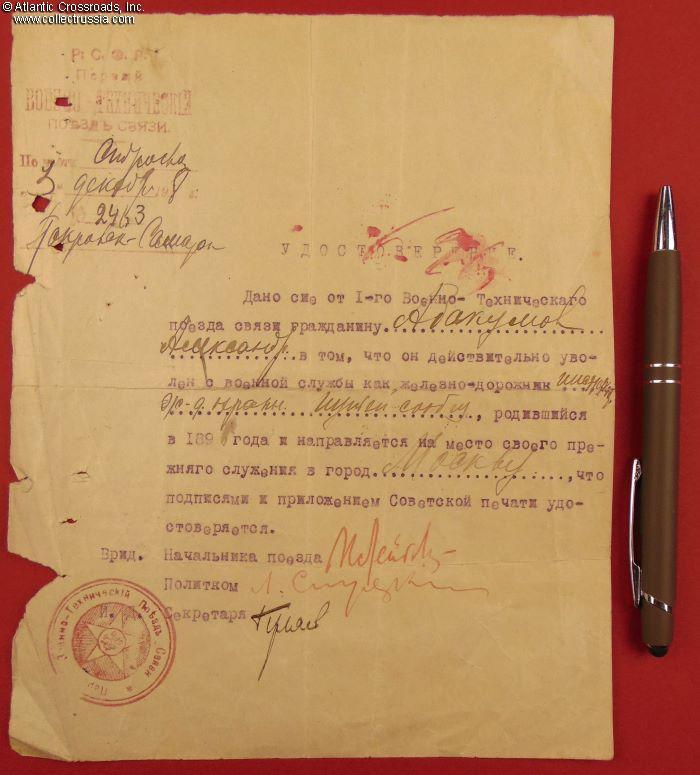 © Atlantic Crossroads, Inc.
www.collectrussia.com
Р. С. Ф. Р.
Первый
ВОЕННО-ТЕХНИЧЕСКІЙ
ПОѢЗДЪ СВЯЗИ.
3 декабр. 191 8 г.
2463
Покровск-Самара
УДОСТОВЕРЕНИЕ.
Дано сие от I-го Военно-Техническаго
поезда связи гражданину Абакумов
Александр. в том, что он действительно уво-
лен с военной службы как железно-дорожник
, родившийся
в 189 года и направляется на место своего пре-
жняго служения в город Москву, что
подписями и приложением Советской печати удо-
стоверяется.
Врид. Начальника поезда
Политком
Секретаря
Военно-Техническій Поѣздъ Связи